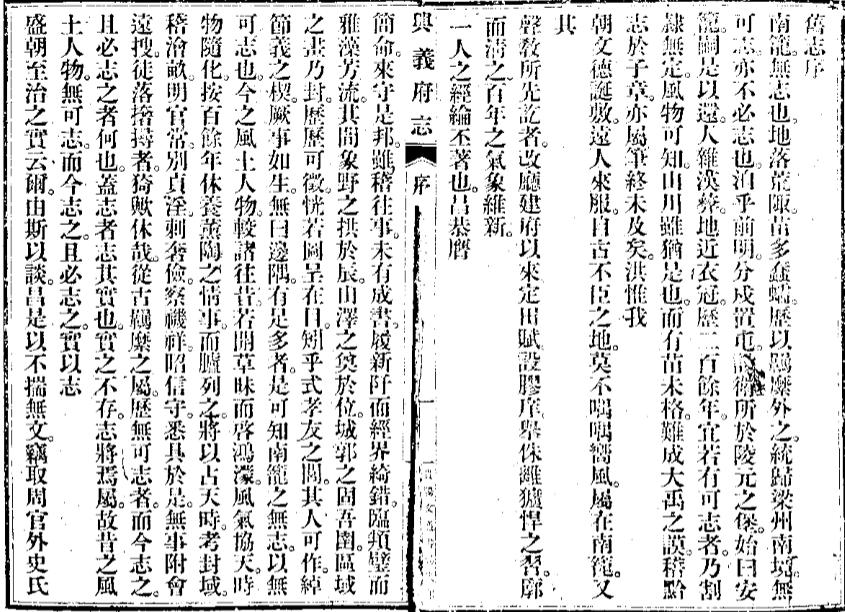 舊志序
南籠無志也。地落荒陬。苗多蠢蠕。歷以羈縻外之。統歸梁州南境。無
可志。亦不必志也。洎乎前明。分戍置屯。衛所於陵元之堡。始曰安
籠。嗣是以還。人雜漢彝。地近衣冠。歷二百餘年。宜若有可志者。乃割
隸無定。風物可知。山川雖猶是也。而有苗未格。難成大禹之謨。稽黔
志於于章。亦屬筆終未及矣。洪惟我
朝文德誕敷。遠人來服。自古不臣之地。莫不喁喁嚮風。屬在南籠。又
其
聲教所先訖者。改廳建府以來。定田賦。設膠庠。舉侏離獷悍之習。廓
而清之。百年之氣象維新。
一人之經綸丕著也。昌碁膺
興義府志
序
簡命。來守是邦。雖稽往事。未有成書。履新阡而經界綺錯。臨頖璧而
雅藻芳流。其間象野之拱於辰。山澤之奠於位。城郭之固吾圉。區域
之畫乃封。歷歷可徵。恍若圖呈在目。矧乎式孝友之閭。其人可作。綽
節義之楔。厥事如生。無曰邊隅。有足多者。是可知南籠之無志。以無
可志也。今之風土人物。較諸往昔。若開草昧而啓鴻濛。風氣協天時
物隨化。按百餘年休養薰陶之情事而臚列之。將以占天時。考封域
稽溝畝。明官常。別貞淫。刺奢儉。察禨祥。昭信守。悉具於是。無事附會
遠搜。徒落撦撏者。猗歟休哉。從古羈縻之屬。歷無可志者。而今志之。
且必志之者何也。蓋志者志其實也。實之不存。志將焉屬。故昔之風
土人物無可志。而今志之。且必志之。實以志
盛朝至治之實云爾。由斯以談。昌是以不揣無文。竊取周官外史氏